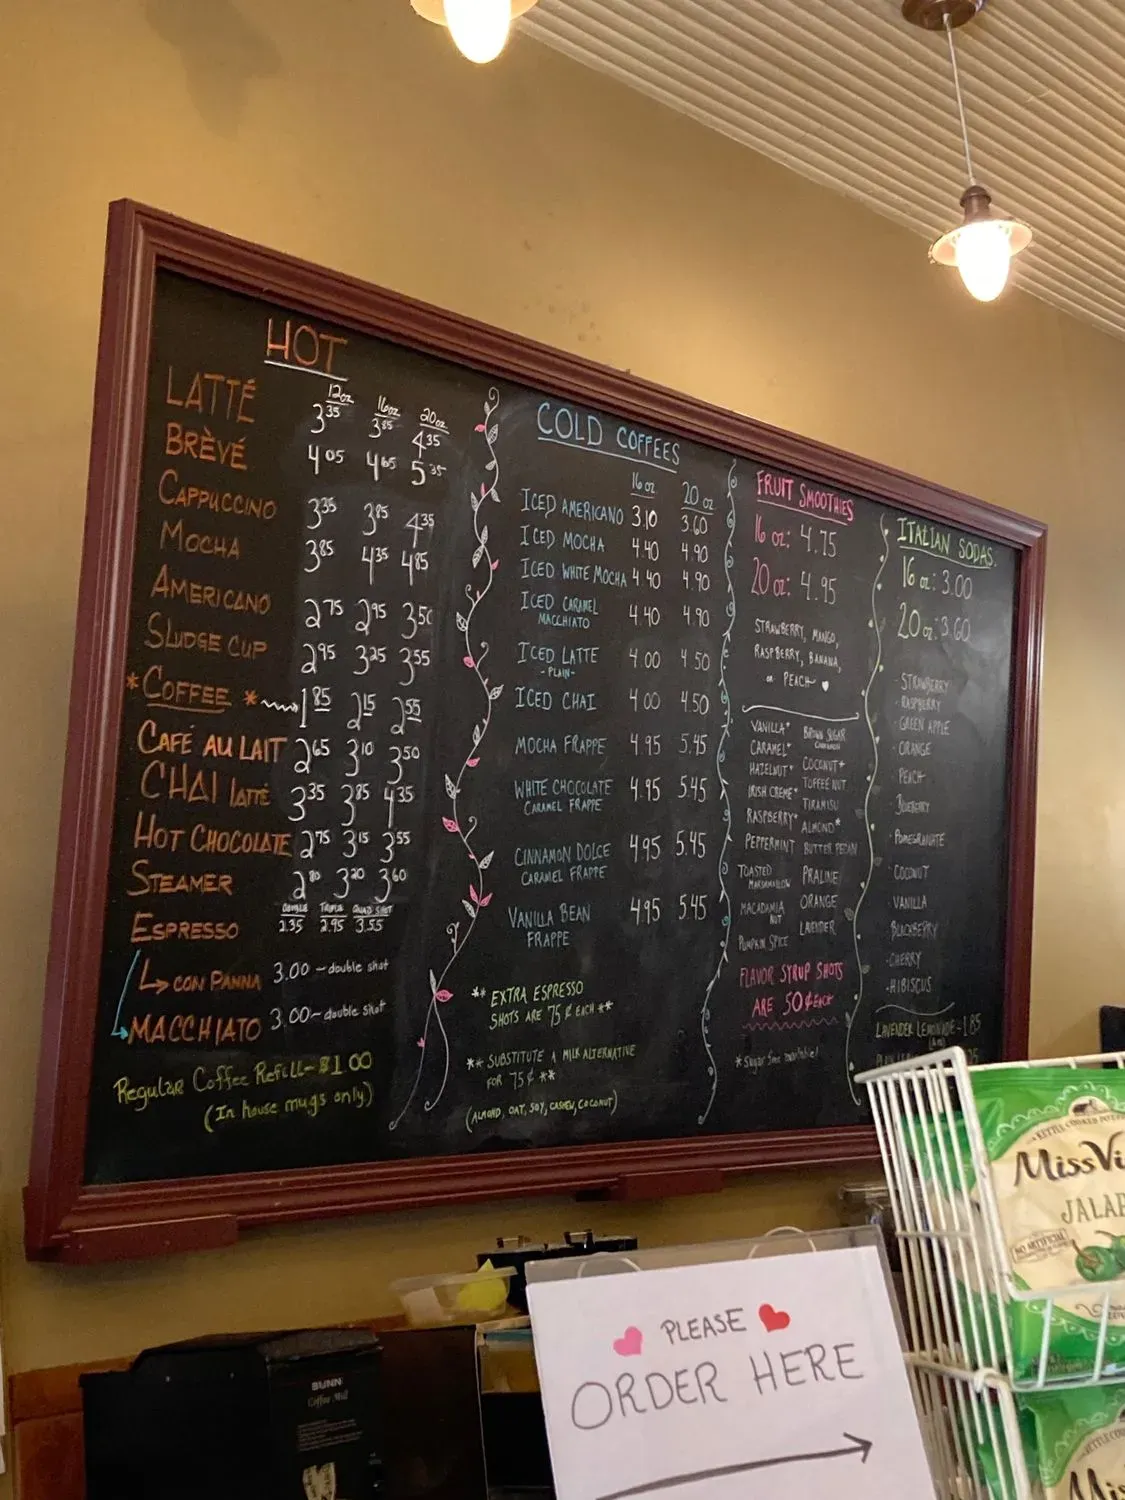 HOT
12oz 16oz 20oz
LATTÉ 3.35 3.85 4.35
BRÈVÉ 4.05 4.65 5.35
CAPPUCCINO 3.35 3.85 4.35
MOCHA 3.85 4.35 4.85
AMERICANO 2.75 2.95 3.50
SLUDGE CUP 2.95 3.25 3.55
*COFFEE* 1.85 2.15 2.55
CAFÉ AU LAIT 2.65 3.10 3.50
CHAI latté 3.35 3.85 4.35
HOT CHOCOLATE 2.75 3.15 3.55
STEAMER 2.80 3.20 3.60
DOUBLE TRIPLE QUAD SHOT
ESPRESSO 2.35 2.95 3.55
CON PANNA 3.00 ~ double shot
MACCHIATO 3.00 ~ double shot
Regular Coffee Refill ~ $1.00
(In house mugs only)
COLD COFFEES
16 oz 20 oz
ICED AMERICANO 3.10 3.60
ICED MOCHA 4.40 4.90
ICED WHITE MOCHA 4.40 4.90
ICED CARAMEL
MACCHIATO 4.40 4.90
ICED LATTE 4.00 4.50
-PLAIN-
ICED CHAI 4.00 4.50
MOCHA FRAPPE 4.95 5.45
WHITE CHOCOLATE 4.95 5.45
CARAMEL FRAPPE
CINNAMON DOLCE 4.95 5.45
CARAMEL FRAPPE
VANILLA BEAN 4.95 5.45
FRAPPE
** EXTRA ESPRESSO
SHOTS ARE 75¢ EACH **
** SUBSTITUTE A MILK ALTERNATIVE
FOR 75¢ **
(ALMOND, OAT, SOY, CASHEW, COCONUT)
FRUIT SMOOTHIES
16 oz: 4.75
20 oz: 4.95
STRAWBERRY, MANGO,
RASPBERRY, BANANA,
or PEACH
VANILLA* BROWN SUGAR
CINNAMON
CARAMEL* COCONUT*
HAZELNUT* TOFFEE NUT
IRISH CREME* TIRAMISU
RASPBERRY* ALMOND*
PEPPERMINT BUTTER PECAN
TOASTED
MARSHMALLOW PRALINE
MACADAMIA
NUT ORANGE
PUMPKIN SPICE LAVENDER
FLAVOR SYRUP SHOTS
ARE 50¢ EACH
*Sugar free available!
ITALIAN SODAS
16 oz: 3.00
20 oz: 3.60
- STRAWBERRY
- RASPBERRY
- GREEN APPLE
- ORANGE
- PEACH
- BLUEBERRY
- POMEGRANATE
- COCONUT
- VANILLA
- BLACKBERRY
- CHERRY
- HIBISCUS
LAVENDER LEMONADE - 1.85
PLEASE
ORDER HERE
BUNN
Coffee Mill
KETTLE COOKED
Miss Vi
JALAP
NO ARTIFICIAL